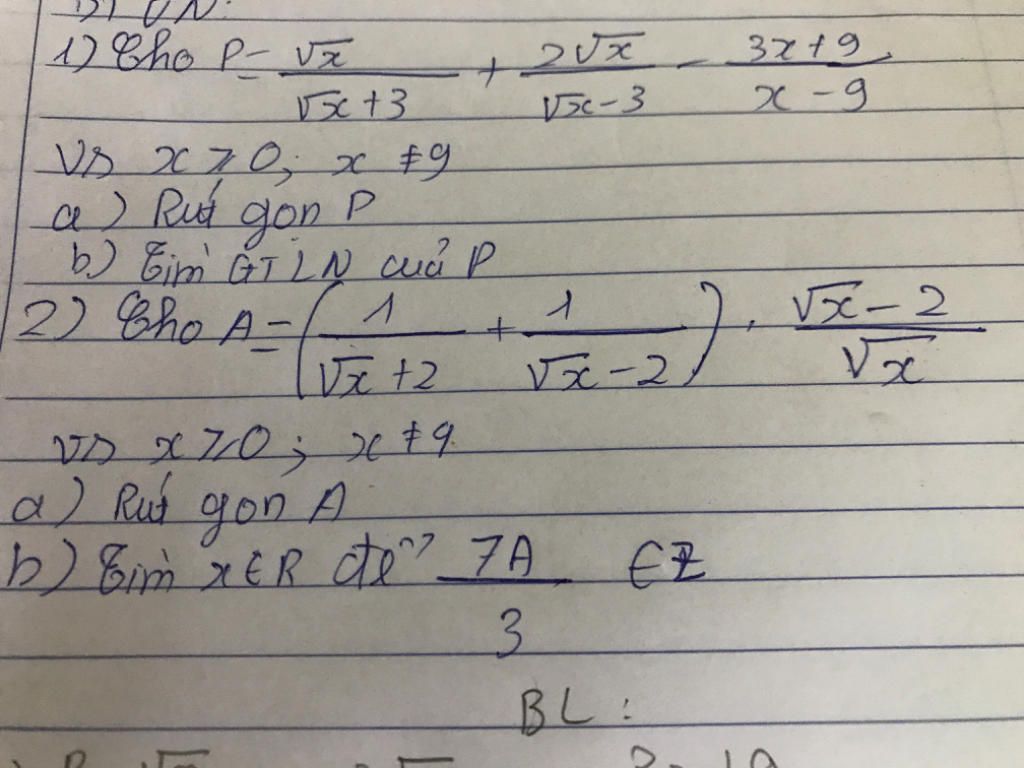 1) Cho P = \frac{\sqrt{x}}{\sqrt{x}+3} + \frac{2\sqrt{x}}{\sqrt{x}-3} - \frac{3x+9}{x-9}
vs x ⩾ 0; x ≠ 9
a) Rút gọn P
b) Tìm GTLN của P
2) Cho A = \left(\frac{1}{\sqrt{x}+2} + \frac{1}{\sqrt{x}-2}\right) . \frac{\sqrt{x}-2}{\sqrt{x}}
vs x ⩾ 0; x ≠ 9
a) Rút gọn A
b) Tìm x ∈ R để \frac{7A}{3} ∈ Z
BL: